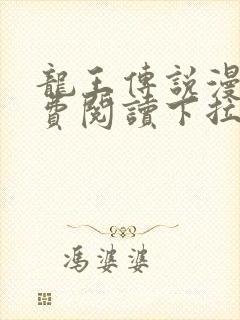 龍王傳說漫
費閱讀下拉
馮婆婆